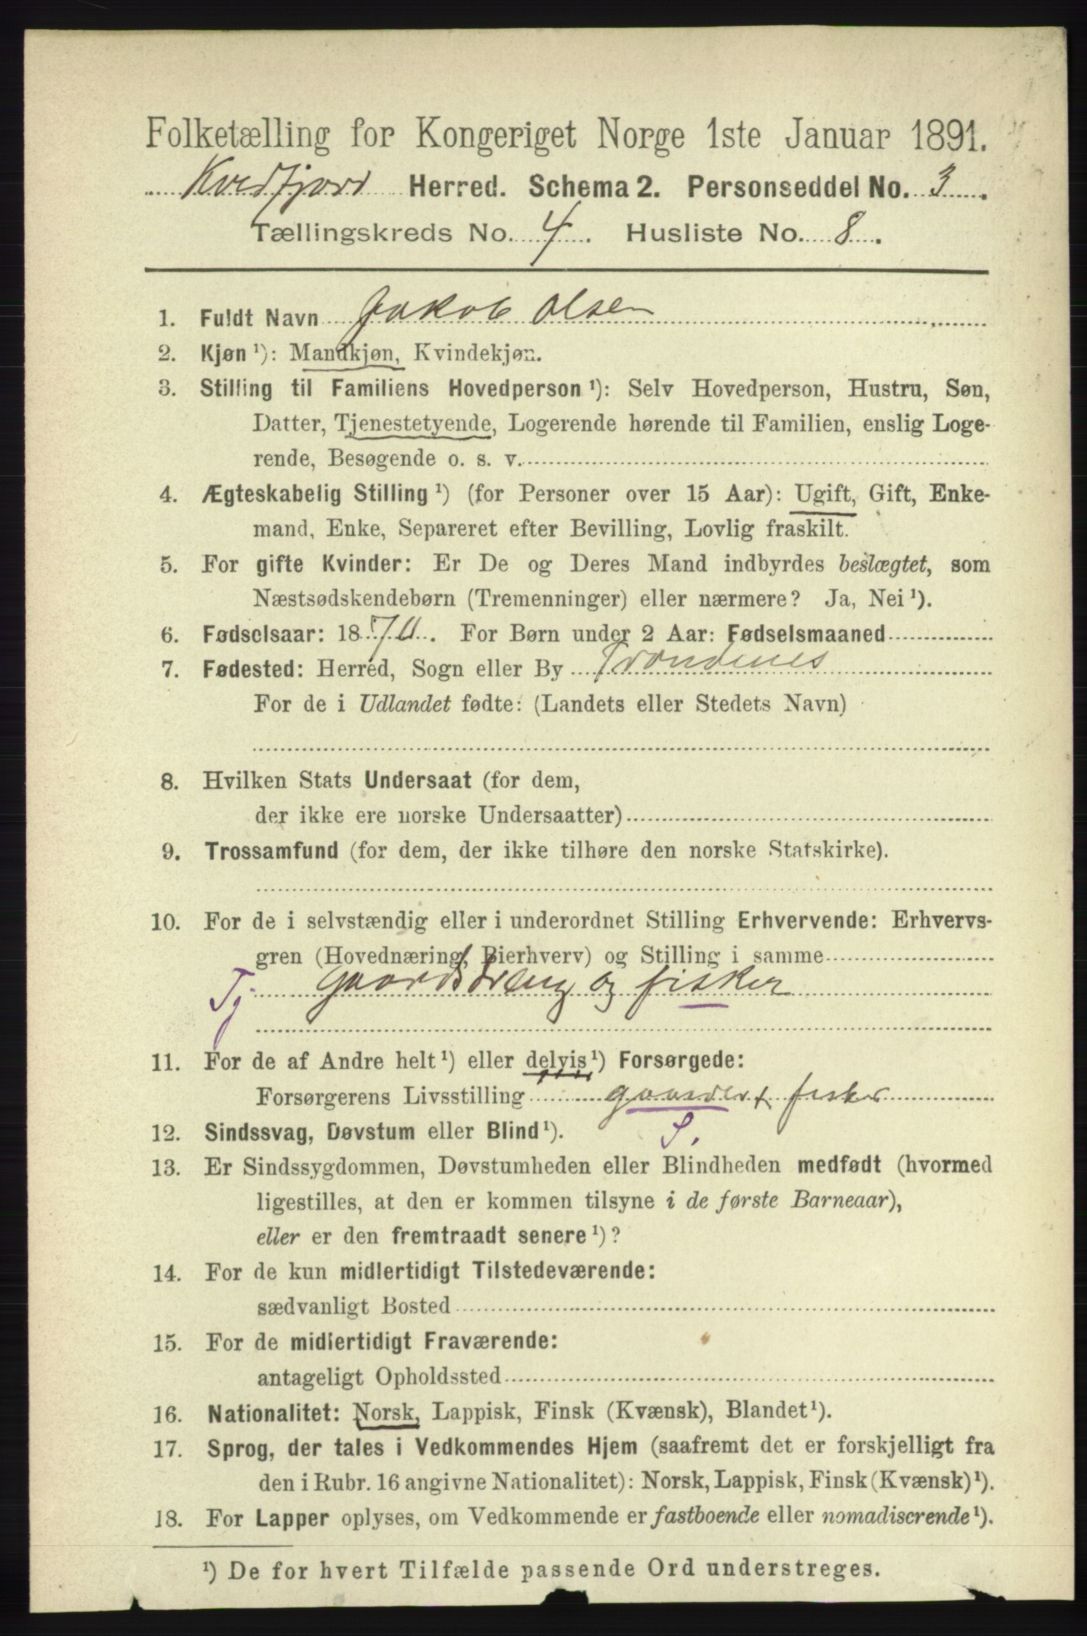 Folketælling for Kongeriget Norge 1ste Januar 1891.
Kvedfjord Herred. Schema 2. Personseddel No. 3.
Tællingskreds No. 4. Husliste No. 8.
1. Fuldt Navn Jakob Olsen
2. Kjøn ¹): Mandkjøn, Kvindekjøn.
3. Stilling til Familiens Hovedperson ¹): Selv Hovedperson, Hustru, Søn,
Datter, Tjenestetyende, Logerende hørende til Familien, enslig Loge-
rende, Besøgende o. s. v.
4. Ægteskabelig Stilling ¹) (for Personer over 15 Aar): Ugift, Gift, Enke-
mand, Enke, Separeret efter Bevilling, Lovlig fraskilt.
5. For gifte Kvinder: Er De og Deres Mand indbyrdes beslægtet, som
Næstsødskendebørn (Tremenninger) eller nærmere? Ja, Nei ¹).
6. Fødselsaar: 1870. For Børn under 2 Aar: Fødselsmaaned
7. Fødested: Herred, Sogn eller By Trondenes
For de i Udlandet fødte: (Landets eller Stedets Navn)
8. Hvilken Stats Undersaat (for dem,
der ikke ere norske Undersaatter)
9. Trossamfund (for dem, der ikke tilhøre den norske Statskirke).
10. For de i selvstændig eller i underordnet Stilling Erhvervende: Erhvervs-
gren (Hovednæring, Bierhverv) og Stilling i samme
Tj. gaardsdreng og fisker
11. For de af Andre helt ¹) eller delvis ¹) Forsørgede:
Forsørgerens Livsstilling gaardbr + fisker
S.
12. Sindssvag, Døvstum eller Blind ¹).
13. Er Sindssygdommen, Døvstumheden eller Blindheden medfødt (hvormed
ligestilles, at den er kommen tilsyne i de første Barneaar),
eller er den fremtraadt senere ¹)?
14. For de kun midlertidigt Tilstedeværende:
sædvanligt Bosted
15. For de midlertidigt Fraværende:
antageligt Opholdssted
16. Nationalitet: Norsk, Lappisk, Finsk (Kvænsk), Blandet ¹).
17. Sprog, der tales i Vedkommendes Hjem (saafremt det er forskjelligt fra
den i Rubr. 16 angivne Nationalitet): Norsk, Lappisk, Finsk (Kvænsk) ¹).
18. For Lapper oplyses, om Vedkommende er fastboende eller nomadiserende ¹).
¹) De for hvert Tilfælde passende Ord understreges.